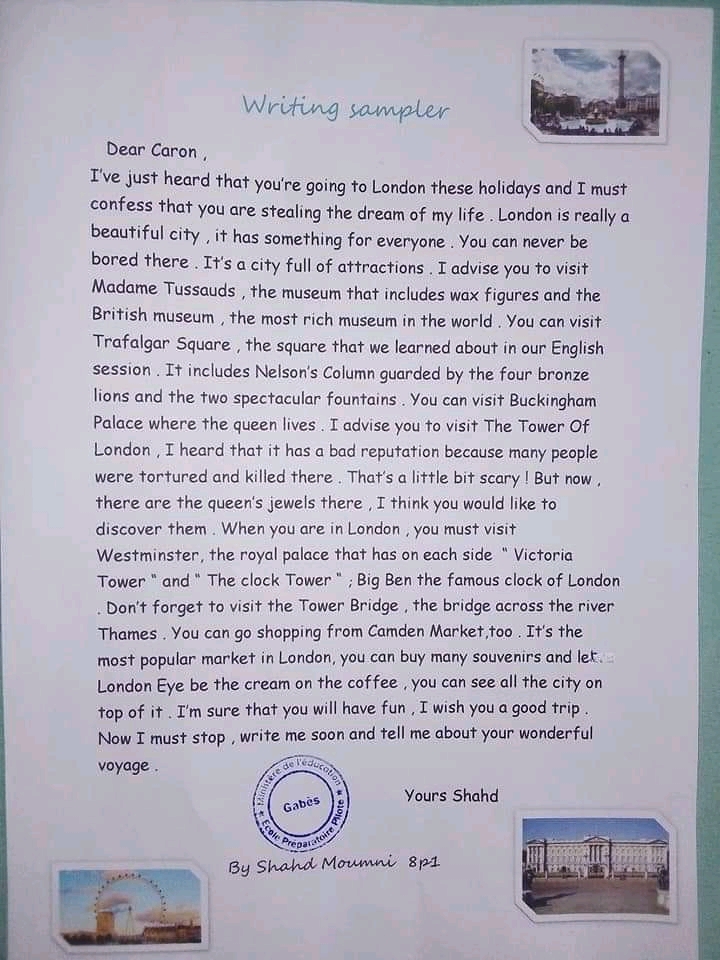 Writing sampler
Dear Caron ,
I've just heard that you're going to London these holidays and I must
confess that you are stealing the dream of my life . London is really a
beautiful city , it has something for everyone . You can never be
bored there . It's a city full of attractions . I advise you to visit
Madame Tussauds , the museum that includes wax figures and the
British museum , the most rich museum in the world . You can visit
Trafalgar Square , the square that we learned about in our English
session . It includes Nelson's Column guarded by the four bronze
lions and the two spectacular fountains . You can visit Buckingham
Palace where the queen lives . I advise you to visit The Tower Of
London , I heard that it has a bad reputation because many people
were tortured and killed there . That's a little bit scary ! But now ,
there are the queen's jewels there , I think you would like to
discover them . When you are in London , you must visit
Westminster, the royal palace that has on each side " Victoria
Tower " and " The clock Tower " ; Big Ben the famous clock of London
. Don't forget to visit the Tower Bridge , the bridge across the river
Thames . You can go shopping from Camden Market,too . It's the
most popular market in London, you can buy many souvenirs and let
London Eye be the cream on the coffee , you can see all the city on
top of it . I'm sure that you will have fun , I wish you a good trip .
Now I must stop , write me soon and tell me about your wonderful
voyage .
Ministère de l'éducation
Gabès
Ecole Préparatoire Pilote
Yours Shahd
By Shahd Moumni 8p1